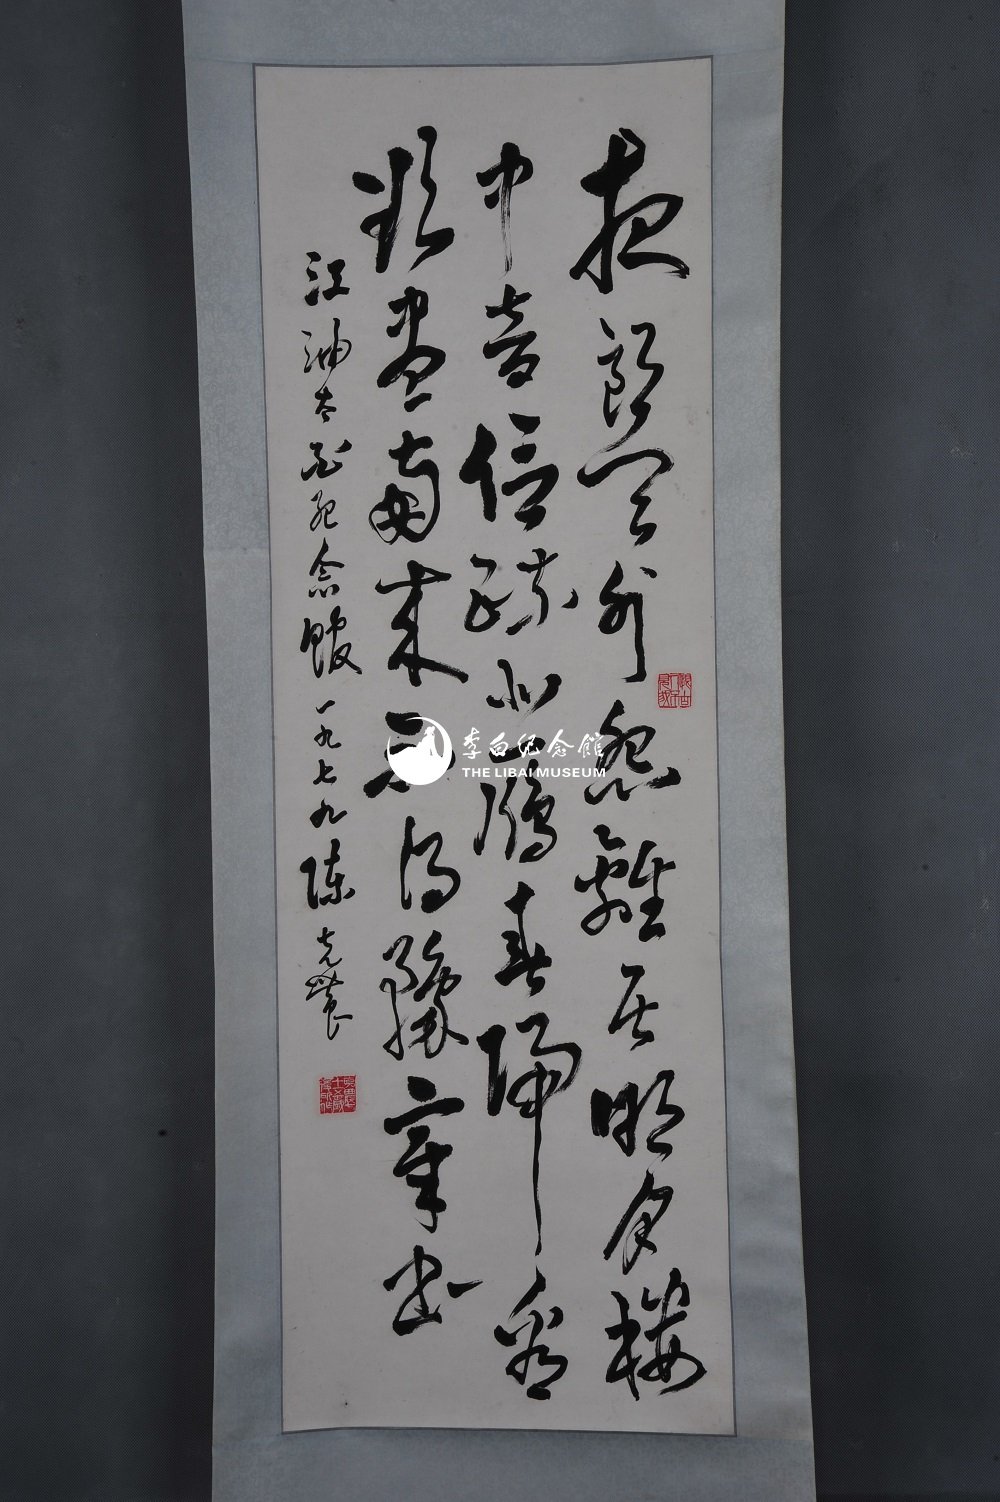 夜郎天外怨離居明月樓
中音信疏北鴈春歸看
欲盡南來不得豫章書
江油太白紀念館一九七九陳克農
李白纪念館
THE LIBAI MUSEUM